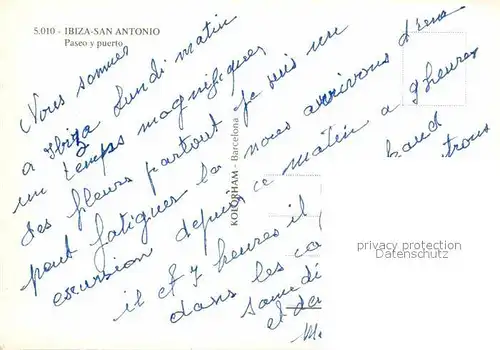 5.010 - IBIZA-SAN ANTONIO
Paseo y puerto
Nous sommes
a Ibiza Lundi matin
un temps magnifique,
des fleurs partout je suis un
peut fatiguer la nous arrivons d'une
excursion depuis ce matin a 9 heures
il et 7 heures il
haud
dans les ca
trons
samedi
et de
KOLORHAM - Barcelona
privacy protection
Datenschutz